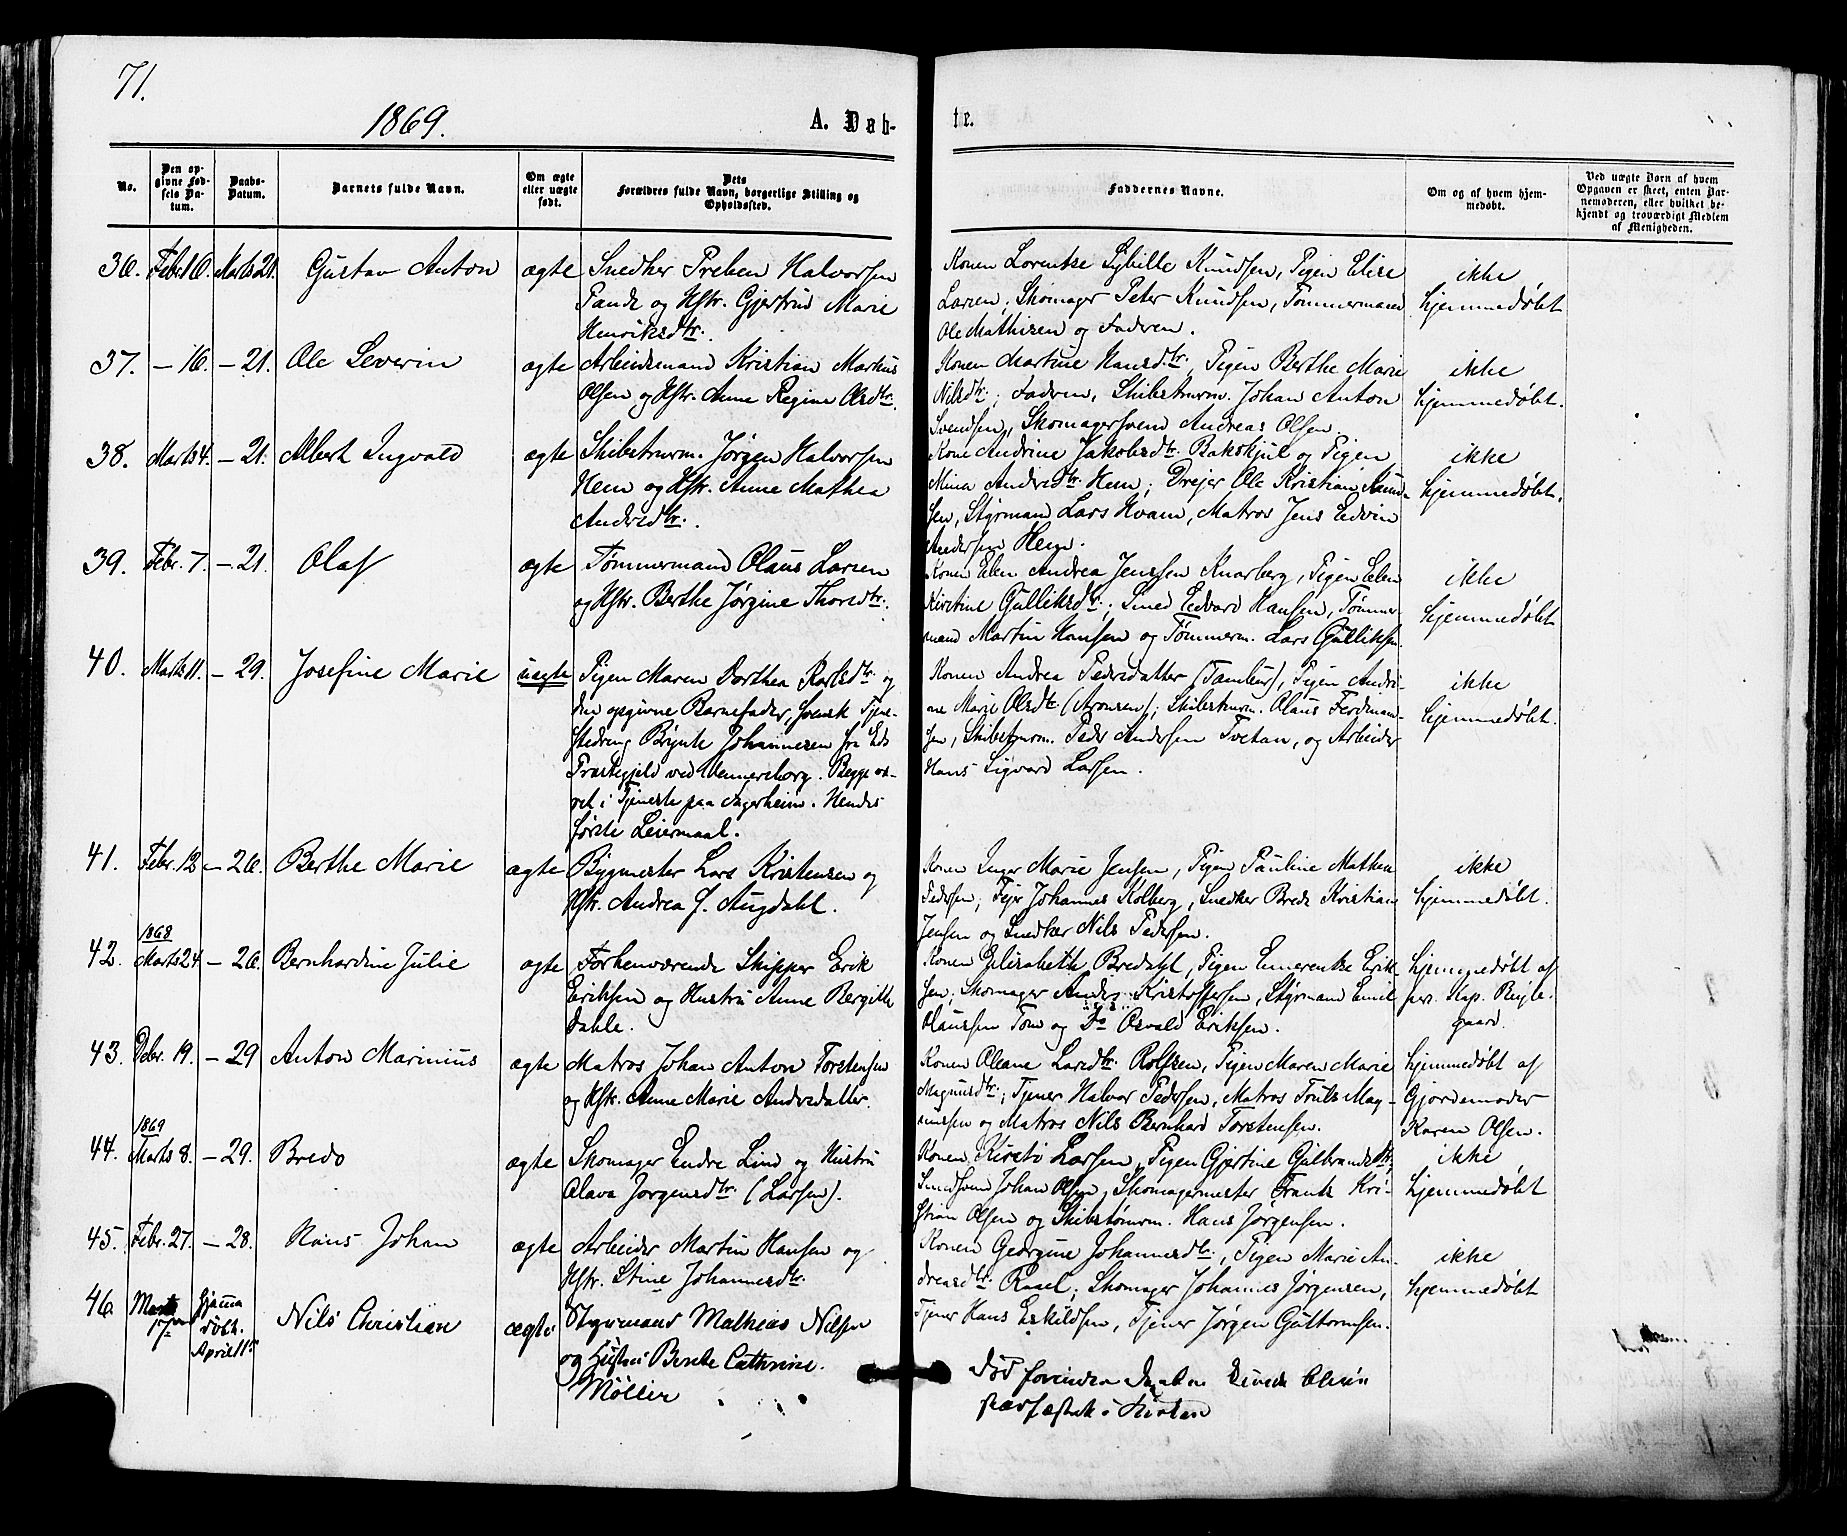 71.
1869.
A. Døb-
te.
No.
Den op-
givne Fød-
sels Da-
tum.
Daabs-
Datum.
Barnets fulde Navn.
Om ægte
eller uægte
født.
Dets
Forældres fulde Navn, borgerlige Stilling og
Opholdssted.
Faddernes Navne.
Om og af hvem hjem-
medøbt.
Ved uægte Børn af hvem
Opgaven er skeet, enten Bar-
nemoderen, eller hvilket be-
kjendt og troværdigt Medlem
af Menigheden.
36. Febr. 10. Marts 21. Gustav Anton ægte
Snedker Preben Halvorsen
Pande og Hstr. Gjertrud Marie
Henriksdtr.
Konen Lorentse Sybille Knudsen, Pigen Elise
Larsen, Skomager Peter Knudsen, Tømmermand
Ole Mathisen og Faderen.
ikke
hjemmedøbt
37. – 16. – 21. Ole Severin ægte
Arbeidsmand Kristian Markus
Olsen og Hstr. Anne Regine Olsdtr.
Konen Martine Hansdtr., Pigen Berthe Marie
Nilsdtr.; Faderen, Skibstmrm. Johan Anton
Svendsen, Skomagersvend Andreas Olsen.
ikke
hjemmedøbt.
38. Marts 4. – 21. Albert Ingvald ægte
Skibstmrm. Jørgen Halvorsen
Hem og Hstr. Anne Mathea
Andredtr.
Kone Andrine Jakobsdtr. Bakskjul og Pigen
Mina Andredtr. Hem; Drejer Ole Kristian Amund-
sen, Styrmand Lars Kvam, Matros Jens Edvin
Andersen Hem.
ikke
hjemmedøbt.
39. Febr. 7. – 21. Olaf ægte
Tømmermand Olaus Larsen
og Hstr. Berthe Jørgine Thoresdtr.
Konen Elen Andrea Jenssen Knarberg, Pigen Elen
Kirstine Gulliksdtr.; Smed Edvard Hansen, Tømmer-
mand Martin Hansen og Tømmerm. Lars Gulliksen.
ikke
hjemmedøbt
40. Marts 11. – 29. Josefine Marie uægte
Pigen Maren Dorthea Karlsdtr. og
den opgivne Barnefader, svensk Tjene-
stedreng Brynte Johannesen fra Eds
Præstegjeld ved Wennersborg. Begge væ-
ret i Tjeneste paa Jagerheim. Hendes
første Leiermaal.
Konen Andrea Pedersdatter (Tambur), Pigen Andri-
ne Marie Olsdtr. (Aronsen); Skibstmrm. Olaus Ferdinan-
sen, Skibstmrm. Peder Andersen Tvetan, og Arbeider
Hans Sigvard Larsen.
ikke
hjemmedøbt.
41. Febr. 12 – 26. Berthe Marie ægte
Bygmester Lars Kristensen og
Hstr. Andrea J. Augdahl.
Konen Inger Marie Jensen, Pigen Pauline Mathea
Pedersen; Fejer Johannes Kolberg, Snedker Brede Kristian
Jensen og Snedker Nils Pedersen.
ikke
hjemmedøbt.
1868
42. Marts 24 – 26. Bernhardine Julie ægte
Forhenværende Skipper Erik
Eriksen og Hustru Anne Bergitte
Dahle.
Konen Elisabeth Bredahl, Pigen Emerentse Erik-
sen; Skomager Anders Kristoffersen, Styrmand Emil
Olaussen Tom og Do Osvald Eriksen.
hjemmedøbt af
per. Kap. Bugle-
gaard.
43. Debr. 19. – 29 Anton Marinius ægte
Matros Johan Anton Torstensen
og Hstr. Anne Marie Andredatter.
Konen Oleane Larsdtr. Rolfsen, Pigen Maren Marie
Magnusdtr.; Tjener Halvor Pedersen, Matros Truls Mag-
nussen og Matros Nils Bernhard Torstensen.
hjemmedøbt af
Gjordemoder
Karen Olsen.
1869
44. Marts 8. – 29. Bredo ægte
Skomager Endre Lind og Hustru
Olava Jørgensdtr. (Larsen).
Konen Kirsti Larsen, Pigen Gjertine Gulbrandsdtr.
Smedsvend Johan Olsen, Skomagermester Frants Kri-
stian Olsen og Skibstømrm. Hans Jørgensen.
ikke
hjemmedøbt
45. Febr. 27. – 28. Hans Johan ægte
Arbeider Martin Hansen og
Hstr. Stine Johannesdtr.
Konen Georgine Johannesdtr., Pigen Marie An-
dreasdtr. Rasel; Skomager Johannes Jørgensen,
Tjener Hans Eskildsen, Tjener Jørgen Guttormsen.
ikke
hjemmedøbt
46. Marts
17 hjemme
døbt.
April 11
Nils Christian ægte
Styrmand Mathias Nilsen
og Hustru Berthe Cathrine
Møller
død forinden Daaben
stadfæstet i Kirken